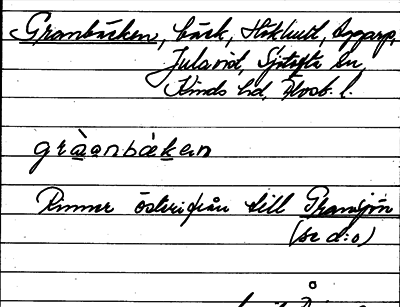 Granbäcken, bäck, Stokhult, Opparp,
Julared, Sjötofta sn,
Kinds hd, Älvsb. l.
gràanbäken
Rinner österifrån till Gransjön
(se d:o)